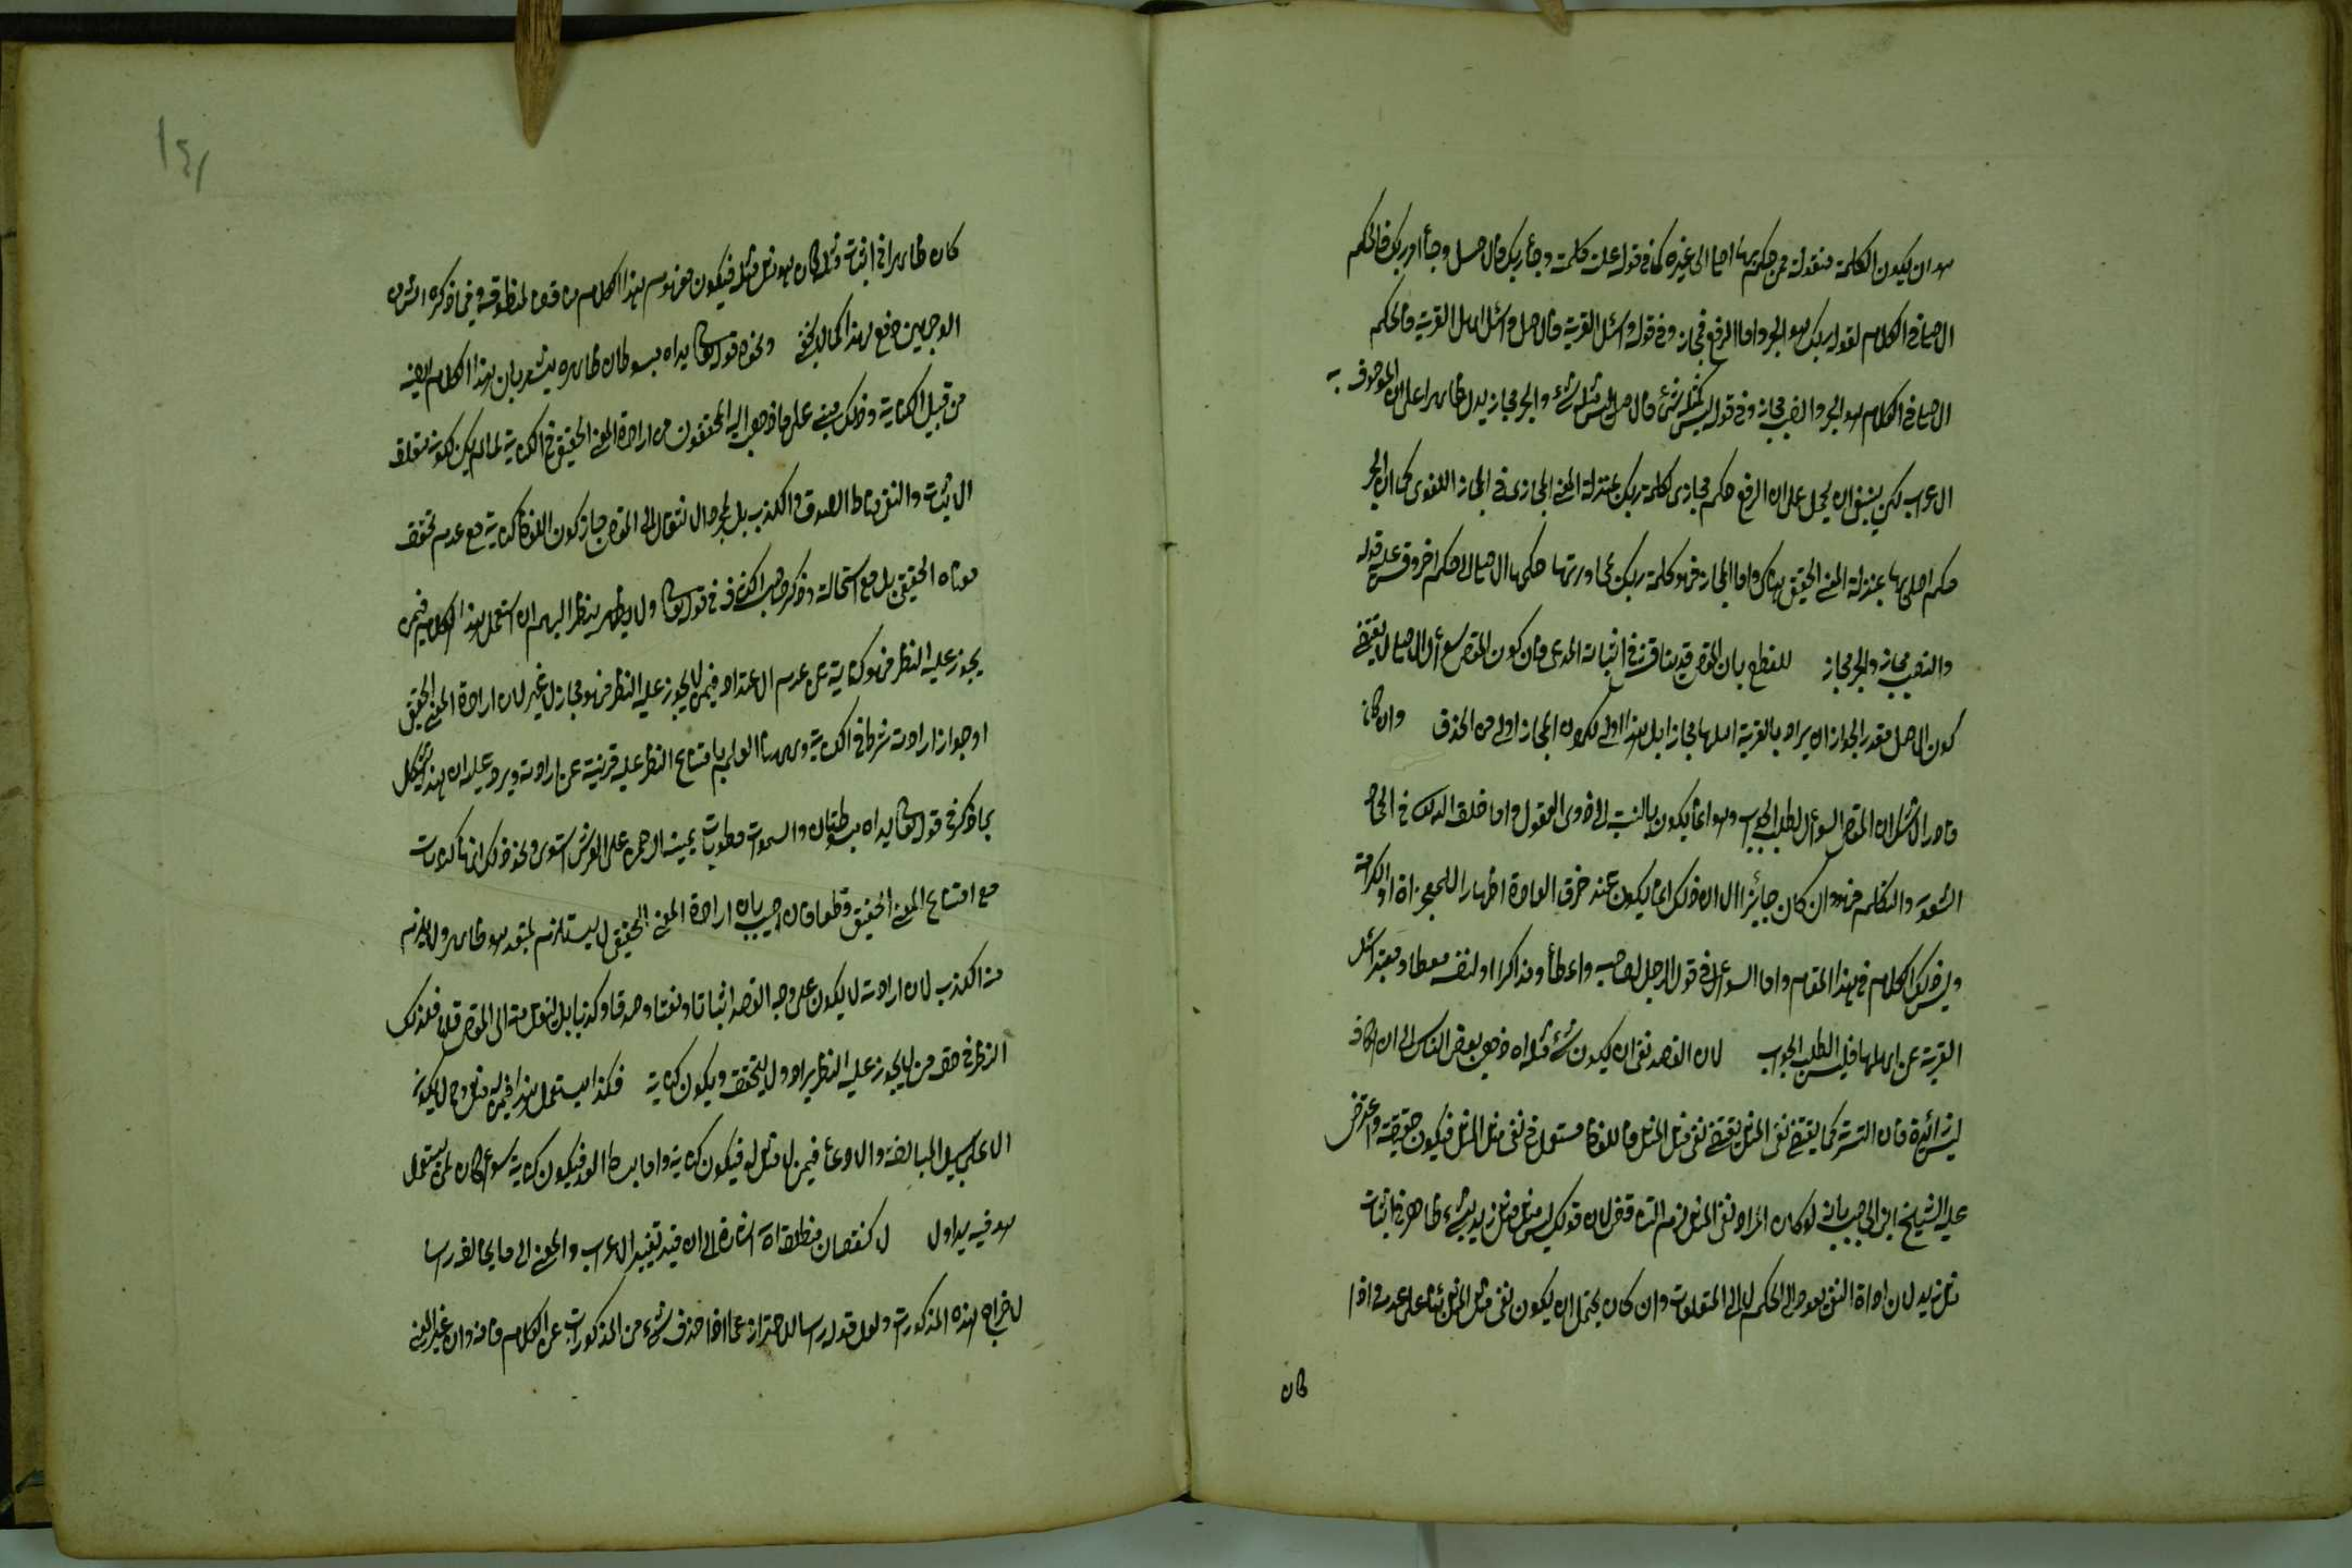 هو ان يكون الكلمة منقولة عن حكم لها اصلي الى غيره كما في قوله علت كلمته وجاء ربك فالاصل وجاء امر ربك فالحكم
الاصلي في الكلام لقوله ربك هو الجر واما الرفع فمجاز وفي قوله واسئل القرية فالاصل واسئل اهل القرية فالحكم
الاصلي في الكلام هو الجر والنصب مجاز وفي قوله ليس كمثله شئ فالاصل ليس مثله شئ والجر مجاز يدل ظاهرا على ان الموصوف به
الاعراب لكن ينبغي ان يحمل على ان الرفع حكم مجازى لكلمة ربك بمنزلة المعنى المجازى في المجاز اللغوى كما ان الجر
حكم اصلي لها بمنزلة المعنى الحقيقي هناك واما المجاز فهو كلمة ربك مجاوزتها حكمها الاصلي الى حكم اخر وقس عليه قوله
والنصب مجاز والجر مجاز للقطع بان المقص قد يناقش في اثبات المدعى فان كون المقص سؤال الاهل لا يقتضى
كون الاصل مقدرا لجواز ان يراد بالقرية اهلها مجازا بل هذا اولى لكون المجاز اولى من الحذف وان كان
قادرا لا شك ان المقص السؤال لطلب الجواب وهو انما يكون بالنسبة الى ذوى العقول واما خلق الادراك في الجماد
الشعور والتكلم فهو وان كان جايزا الا ان ذلك انما يكون عند خرق العادة اظهارا للمعجزة او الكرامة
وليس ذلك الكلام في هذا المقام واما السؤال في قول الرجل لصاحبه واعظا ومذاكرا او لنفسه متعظا ومعتبرا اسئل
القرية عن اهلها فليس لطلب الجواب لان القصد نفى ان يكون شئ مثله اه ذهب بعض الناس الى ان الكاف
ليس بزائدة فان التشبيه كما يقتضى نفى المثل يقتضى نفى مثل المثل فاللفظ مستعمل في نفى مثل المثل فيكون حقيقة واعترض
عليه الشيخ ابن الحاجب بانه لو كان المراد نفى المثل لزم التناقض لان قولك ليس مثل مثل زيد بشئ ظاهر في اثبات
مثل زيد لان اداة النفى يعود الى الحكم لا الى المتعلقات وان كان يحتمل ان يكون نفى مثل المثل بناء على عدمه واذا
كان
كان ظاهرا في اثبات مثله كان هو مثل مثله فيكون مفهوم هذا الكلام مناقضا لمنطوقه وفي ما ذكره الش من
الوجهين دفع لهذا كما لا يخفى ونحوه قوله تعالى بل يداه مبسوطتان ظاهره يشعر بان هذا الكلام ايضا
من قبيل الكناية وذلك مبنى على ما ذهب اليه المحققون من ارادة المعنى الحقيقي في الكناية لما لم يكن لكونه متعلق
الاثبات والنفى مناط الصدق والكذب بل لمجرد الانتقال الى المقص جاز كون اللفظ كناية مع عدم تحقق
معناه الحقيقي بل مع استحالته وذكر صاحب الكشاف في قوله تعالى ولا ينظر اليهم ان استعمل هذا الكلام فيمن
يجوز عليه النظر فهو كناية عن عدم الاعتداد وفيمن لا يجوز عليه النظر فهو مجاز لا غير لان ارادة المعنى الحقيقي
او جواز ارادته شرط في الكناية وههنا العلم بامتناع النظر عليه قرينة عن ارادته ويرد عليه ان هذا يشكل
بما ذكر في قوله تعالى بل يداه مبسوطتان والسموات مطويات بيمينه الرحمن على العرش استوى ونحو ذلك انها كنايات
مع امتناع المعنى الحقيقي قطعا فان اجيب بان ارادة المعنى الحقيقي لا يستلزم تحققه وهو ظاهر ولا يلزم
منه الكذب لان ارادته لا يكون على وجه القصد اثباتا ونفيا وصدقا وكذبا بل لينتقل منه الى المقص قلنا فكذلك
النظر في حق من لا يجوز عليه النظر يراد ولا يتحقق ويكون كناية فكذا يستعمل هذا فيمن له مثل ومن لا يكون
الا على سبيل المبالغة والادعاء فيمن لا مثل له فيكون كناية واما بسط اليد فيكون كناية سواء كان لمن يستعمل
هو فيه يد او لا لا كنقصان منطلقا اه اشارة الى ان قيد تغيير الاعراب والمعنى الى ما يخالف راسا
لاخراج هذه المذكورات ولعل قوله راسا للاحتراز عما اذا حذف شئ من المذكورات عن الكلام فانه وان غير المعنى